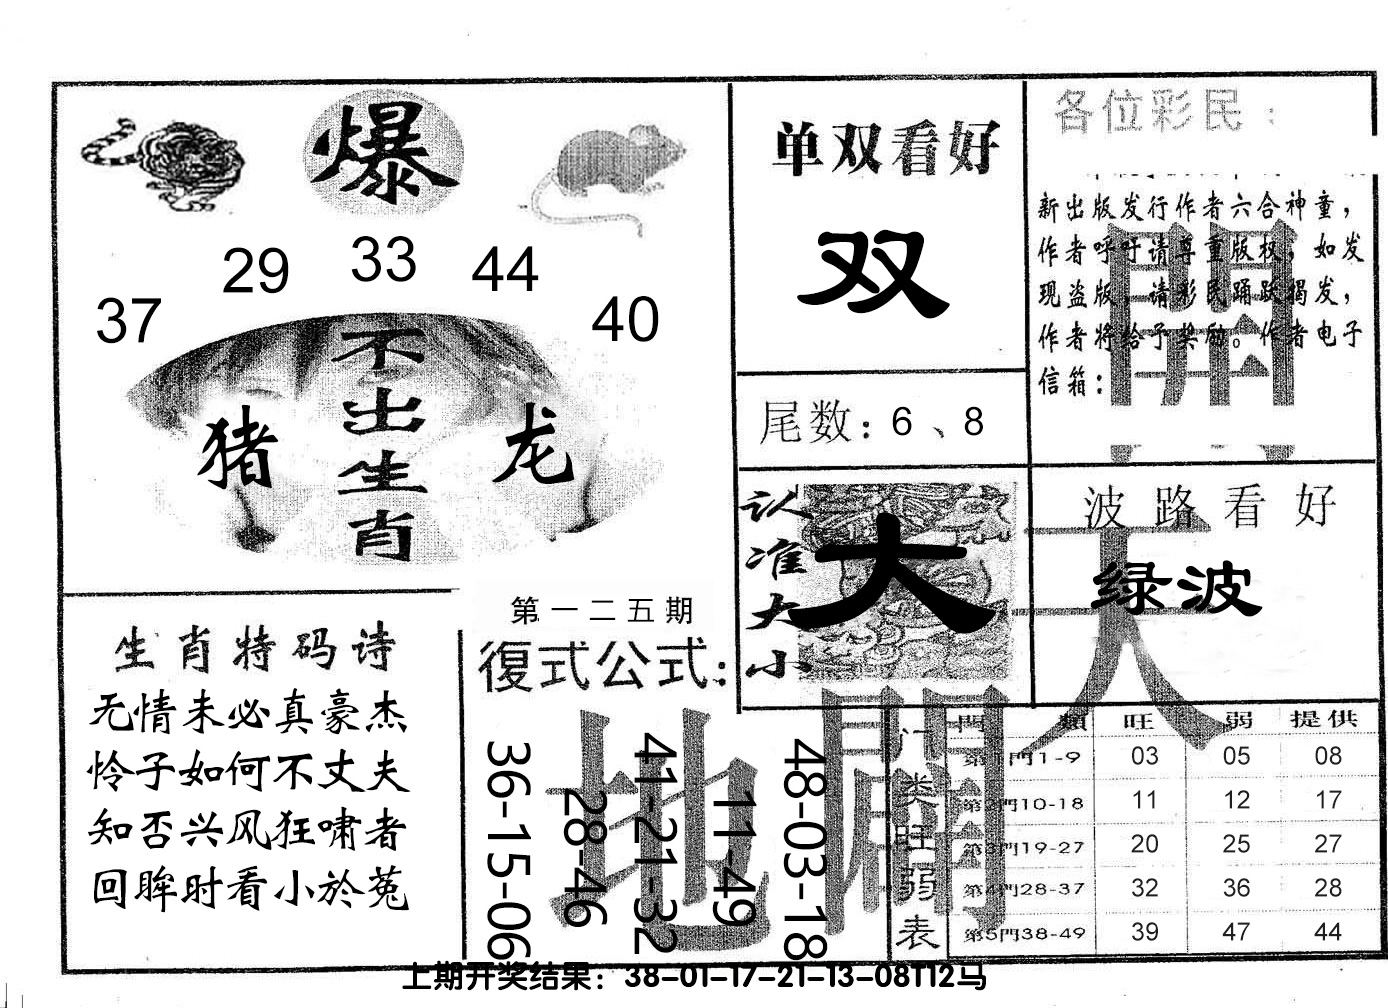 爆
29 33 44
37 40
不出生肖
猪 龙
单双看好
双
尾数：6、8
各位彩民：
新出版发行作者六合神童，
作者呼吁请尊重版权，如发
现盗版，请彩民踊跃揭发，
作者将给予奖励。作者电子
信箱：
開
认准大小
大
波路看好
绿波
天
生肖特码诗
无情未必真豪杰
怜子如何不丈夫
知否兴风狂啸者
回眸时看小於菟
第一二五期
復式公式：
36-15-06
28-46
41-21-32
11-49
48-03-18
地
門類 旺 弱 提供
门类旺弱表
第1門1-9 03 05 08
第2門10-18 11 12 17
第3門19-27 20 25 27
第4門28-37 32 36 28
第5門38-49 39 47 44
上期开奖结果：38-01-17-21-13-08T12马